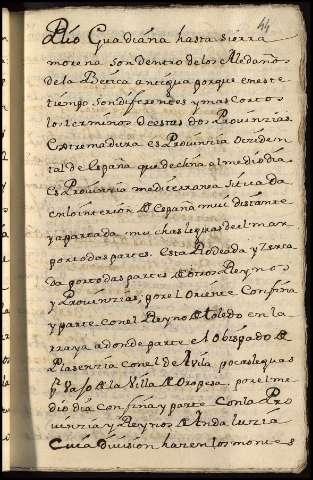 44
Rio Guadiana hasta sierra
morena son dentro delos Aledaños
dela Betica antigua porque eneste
tiempo son diferentes y mas cortos
los terminos de estas dos Provinzias
Extremadura es Provinzia occiden
tal de españa que declina al medio dia
es Provinzia mediterranea sitiada
enlo interior de españa mui distante
y apartada muchas leguas del mar
por todas partes. esta Rodeada y zerca
da por todas partes de otros Reynos
y Provinzias, por el oriente Confina
y parte con el Reyno de toledo en la
rraya adonde parte el obispado de
Plasenzia con el de Avila pocas leguas
de la Villa de oropesa, por el me
dio dia confina y parte con la Pro
uinzia y Reyno de Andaluzia
Cuia division hazen los montes